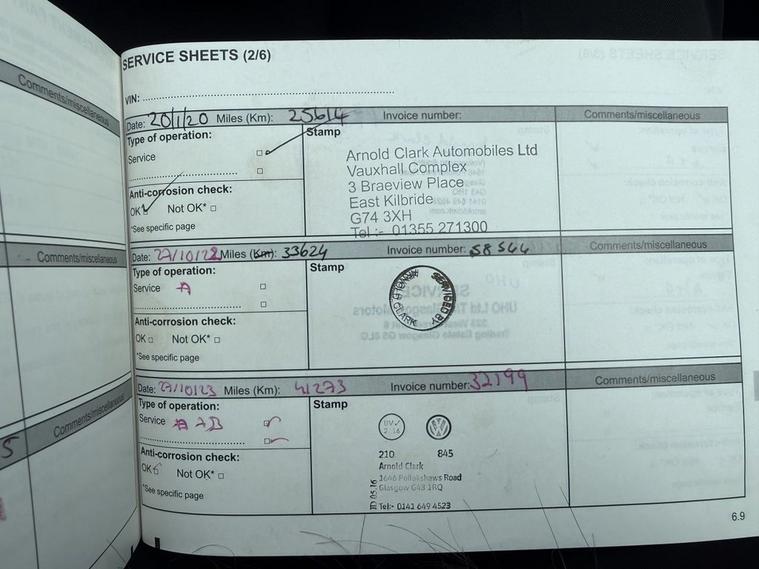 Comments/miscellaneous
Comments/miscellaneous
Comments/miscellaneous
5
SERVICE SHEETS (2/6)
VIN:
Date: 20/1/20 Miles (Km): 25614 Invoice number: Comments/miscellaneous
Type of operation: Stamp
Service
Anti-corrosion check:
OK Not OK*
*See specific page
Arnold Clark Automobiles Ltd
Vauxhall Complex
3 Braeview Place
East Kilbride
G74 3XH
Tel :- 01355 271300
Date: 27/10/22 Miles (Km): 33624 Invoice number: 58544 Comments/miscellaneous
Type of operation: Stamp
Service A
Anti-corrosion check:
OK Not OK*
*See specific page
SERVICED BY
ARNOLD CLARK
Date: 27/10/23 Miles (Km): 41273 Invoice number: 32199 Comments/miscellaneous
Type of operation: Stamp
Service A AB
Anti-corrosion check:
OK Not OK*
*See specific page
210 845
Arnold Clark
1646 Pollokshaws Road
Glasgow G43 1RQ
Tel:- 0141 649 4523
6.9